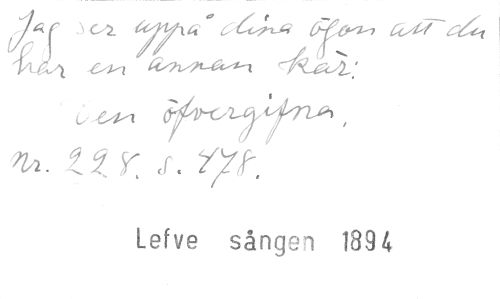 Jag ser uppå dina ögon att du
har en annan kär.
Den öfvergifna.
Nr. 228. s. 478.
Lefve sången 1894